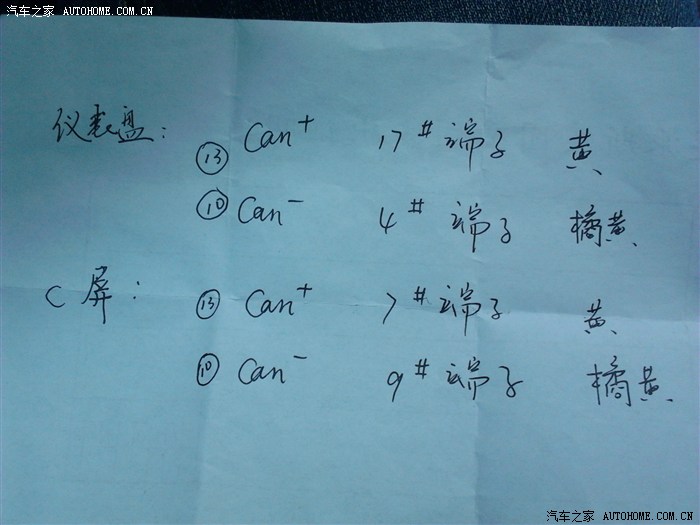 汽车之家 AUTOHOME.COM.CN
仪表盘： ⑬ Can+ 17# 端子 黄
⑩ Can- 4# 端子 橘黄
C屏： ⑬ Can+ 7# 端子 黄
⑩ Can- 9# 端子 橘黄
汽车之家 AUTOHOME.COM.CN